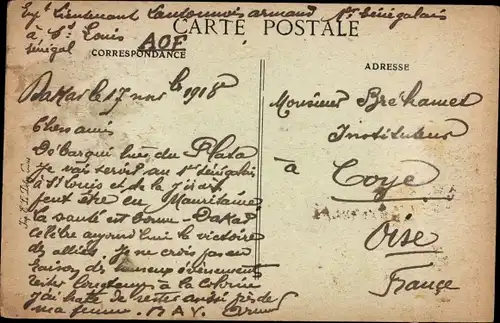 Expt Lieutenant Cantonnois armand 1er Sénégalais
à St Louis
Sénégal
AOF
CARTE POSTALE
CORRESPONDANCE
ADRESSE
Dakar le 17 nov 1918
Chers amis
Débarqué hier du Plata
Je vais servir au 1er Sénégalais
à St Louis et de là j'irai
peut être en Mauritanie
La santé est bonne - Dakar
célèbre aujourd'hui la victoire
des alliés Je ne crois pas en
raison des heureux évènements
rester longtemps à la Colonie
J'ai hâte de rester aussi près de
ma femme. BAV.
Monsieur Bréhamet
Instituteur
à
Coye
Oise
France